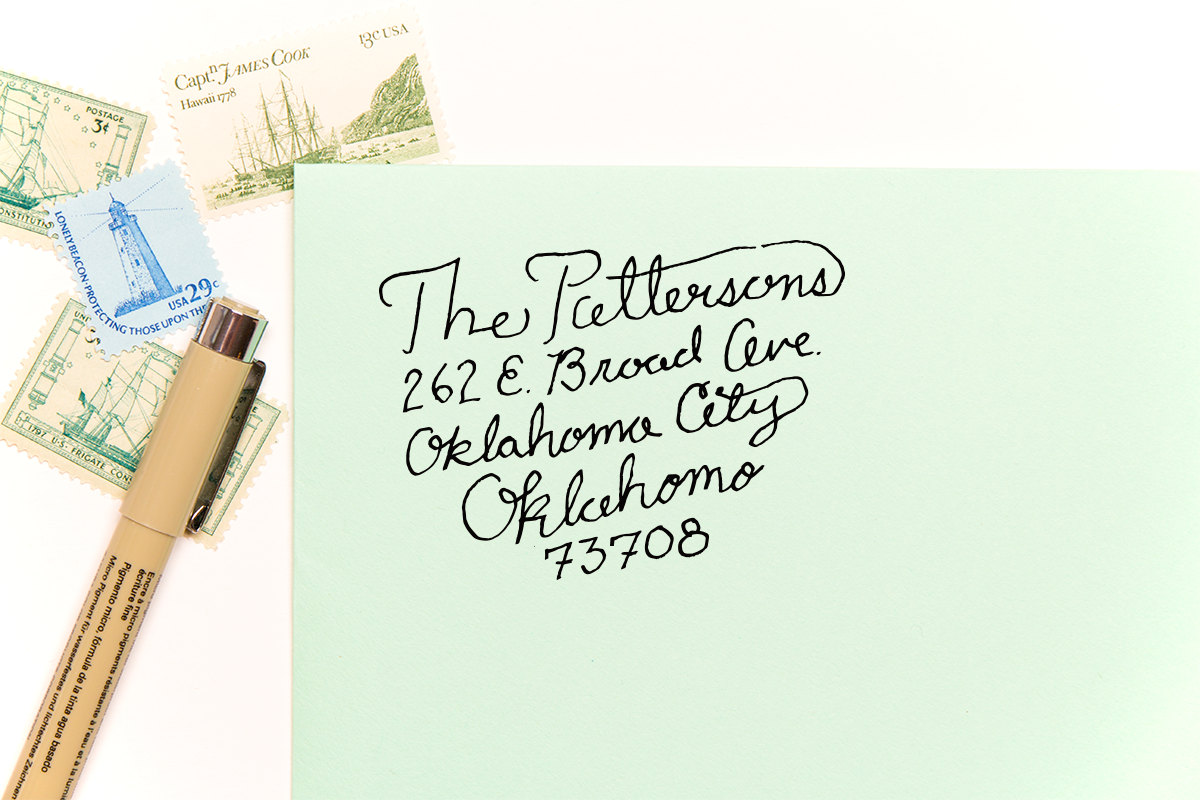 Captn. JAMES COOK
13c USA
Hawaii 1778
POSTAGE
3¢
LONELY BEACON·PROTECTING THOSE UPON THE
USA 29c
1797 U.S. FRIGATE CON
The Pattersons
262 E. Broad Ave.
Oklahoma City
Oklahoma
73708
Encre à micro pigments résistante à l'eau et à la lumi
écriture fine
Pigmento micro, fórmula de la tinta agua basado
Micro Pigment für wasserfestes und lichtechtes Zeichnen